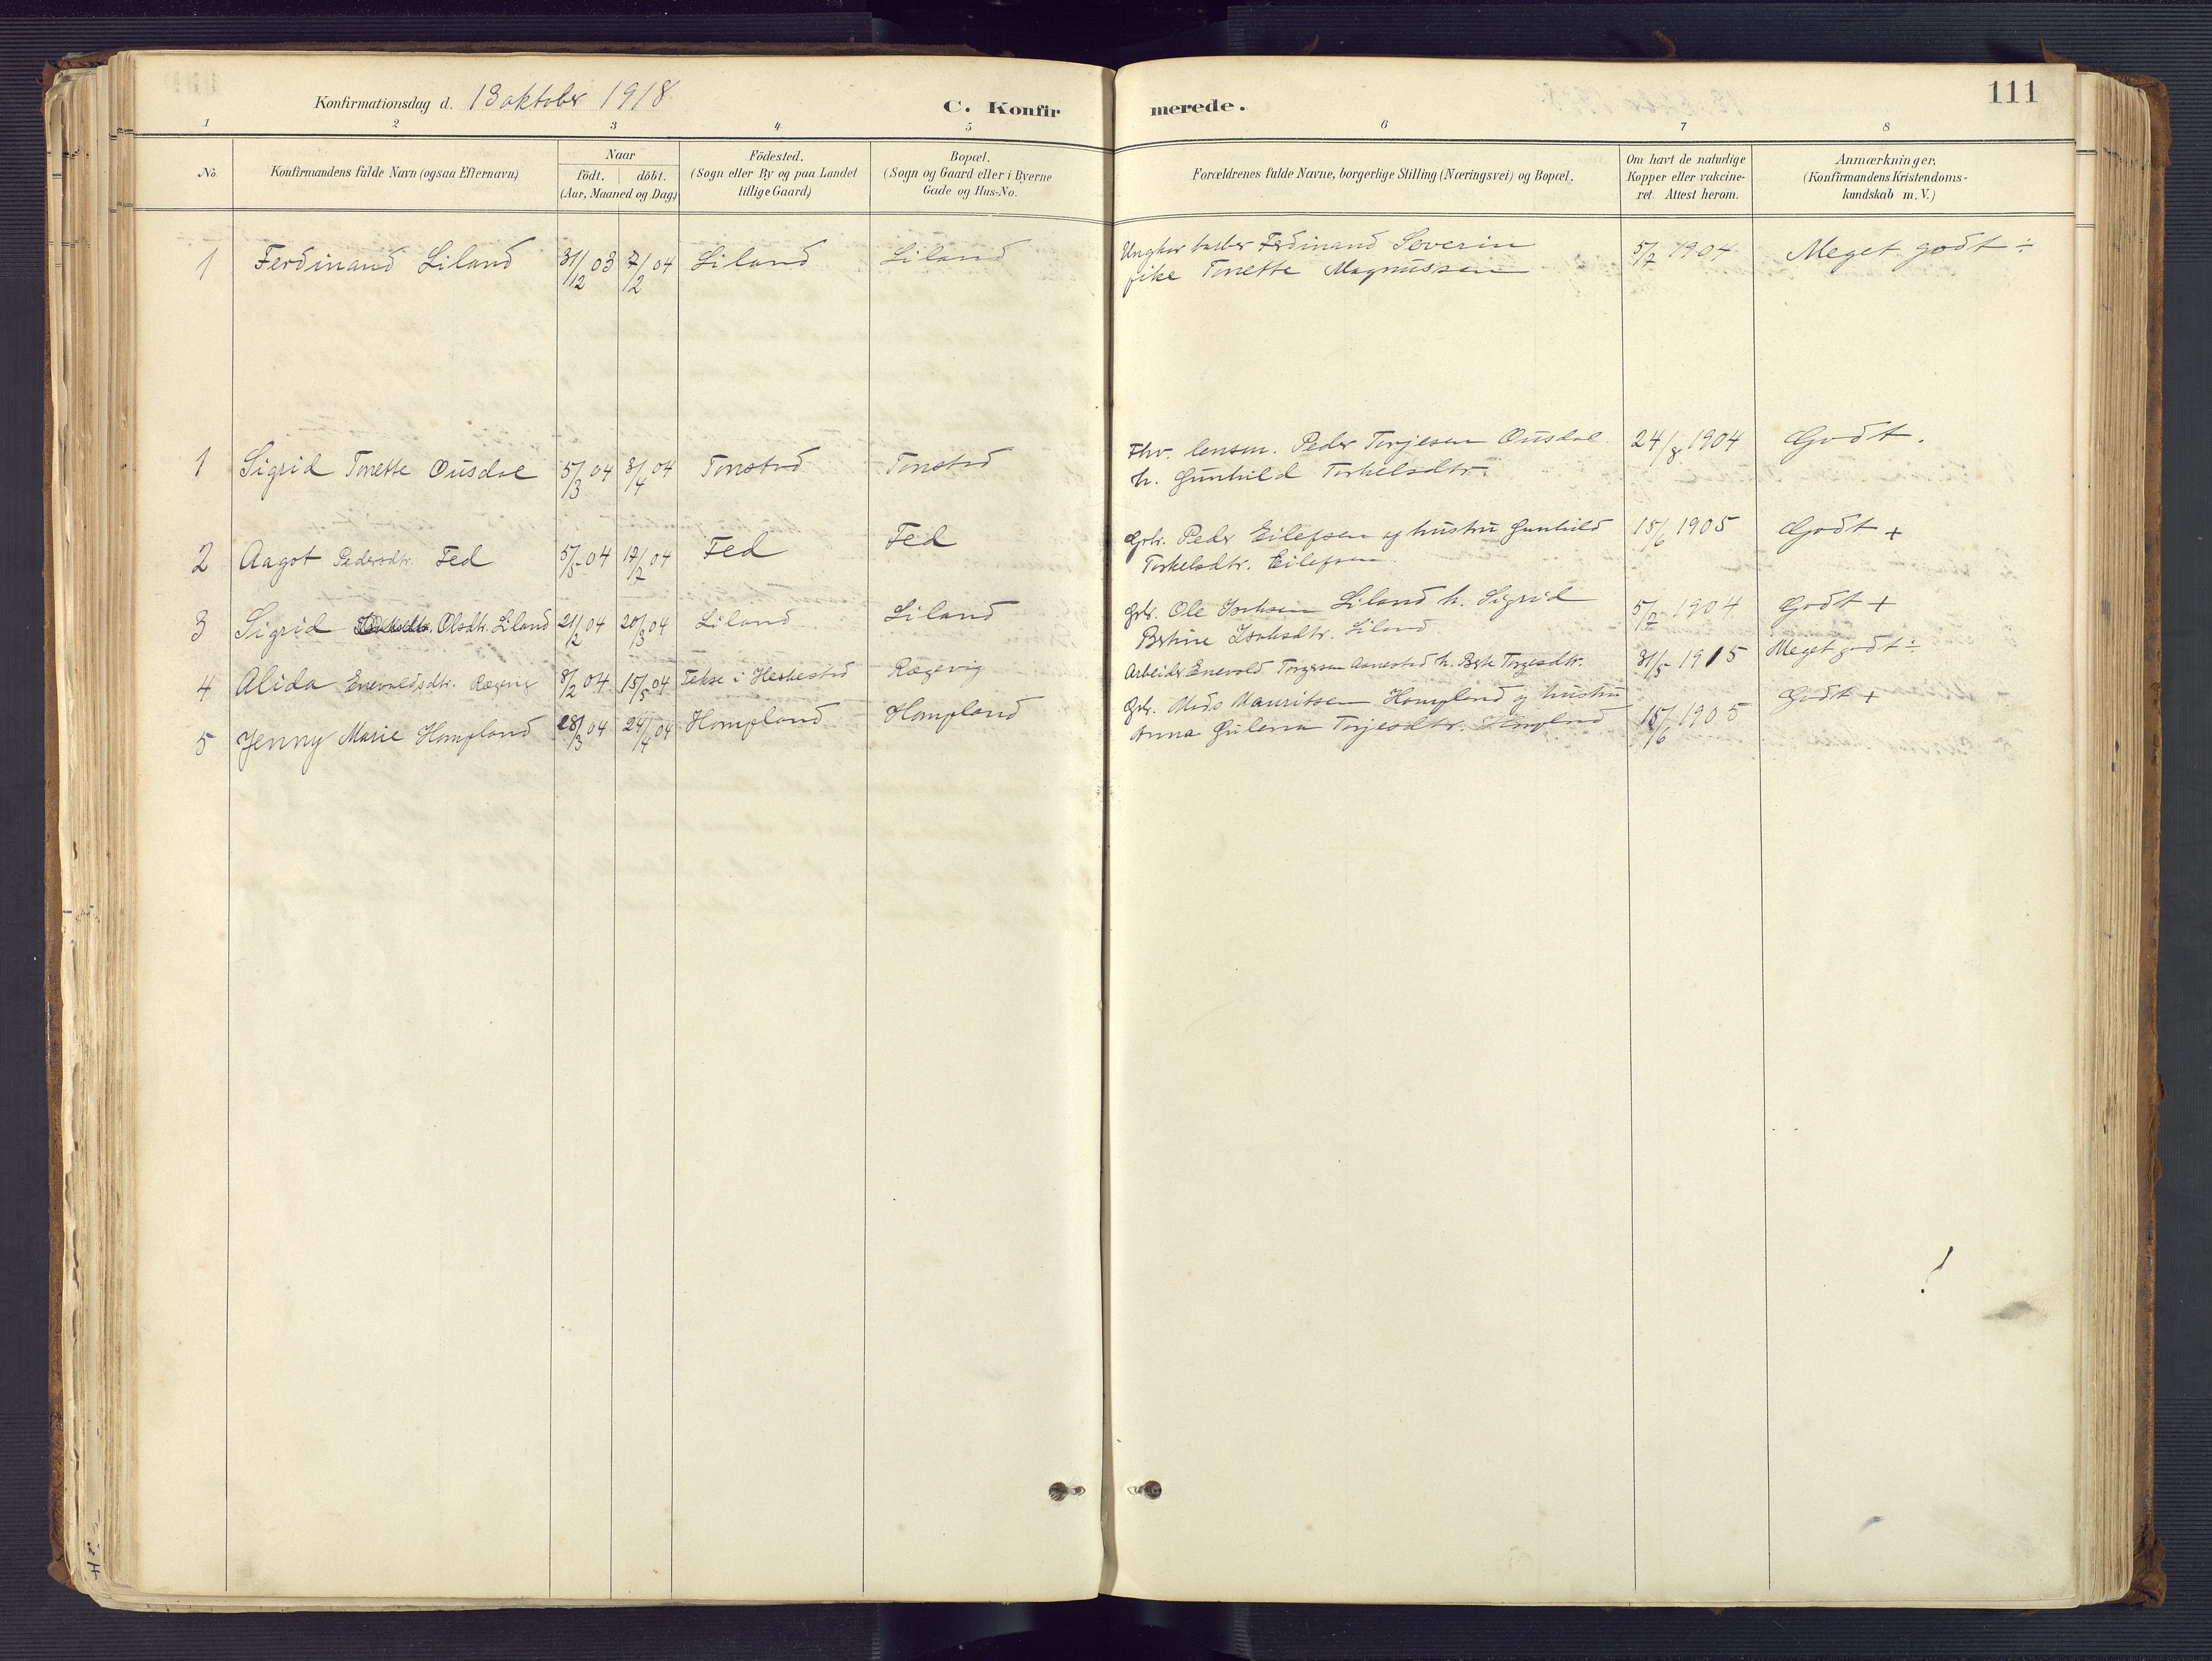 Konfirmationsdag d. 13 oktober 1918
C. Konfirmerede.
111
1 2 3 4 5 6 7 8
No.
Konfirmandens fulde Navn (ogsaa Efternavn)
Naar
födt. döbt.
(Aar, Maaned og Dag)
Födested.
(Sogn eller By og paa Landet
tillige Gaard)
Bopæl.
(Sogn og Gaard eller i Byerne
Gade og Hus-No.
Forældrenes fulde Navne, borgerlige Stilling (Næringsvei) og Bopæl.
Om havt de naturlige
Kopper eller vakcine-
ret. Attest herom.
Anmærkninger.
(Konfirmandens Kristendoms-
kundskab m. V.)
1 Ferdinand Liland 31/12 03 7/2 04 Liland Liland Ungkar Ferdinand Severin 5/7 1904 Meget godt ÷
pike Tonette Magnussen
1 Sigrid Tonette Ousdal 5/3 04 3/4 04 Tonstad Tonstad Fhv. lensm. Peder Torjesen Ousdal 24/8 1904 Godt.
h. Gunhild Torkelsdtr.
2 Aagot Pedersdtr. Fed 5/5 04 17/7 04 Fed Fed Gbr. Peder Eilefsen og hustru Gunhild 15/6 1905 Godt +
Torkelsdtr. Eilefsen.
3 Sigrid Olsdtr. Liland 21/2 04 20/3 04 Liland Liland Gbr. Ole Isaksen Liland h. Sigrid 5/7 1904 Godt +
Bertine Isaksdtr. Liland
4 Alida Enevoldsdtr. Rægevig 8/2 04 15/5 04 Tekse i Heskestad Rægevig Arbeider Enevold Torgersen Aanestad h. Berte Torgesdtr. 31/5 1915 Meget godt ÷
5 Jenny Marie Hompland 28/3 04 24/4 04 Hompland Hompland Gbr. Mads Mauritsen Hompland og hustru 15/6 1905 Godt +
Anna Gulena Torjesdtr. Hompland